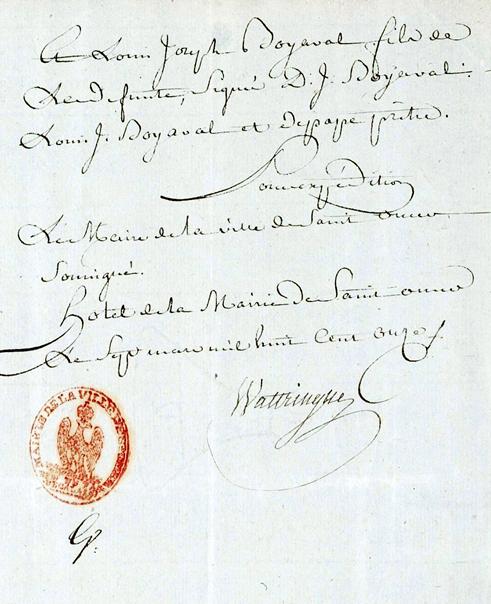 A Louis Joseph Boyaval fils de
La defunte, Signé D. J. Boyaval.
Louis J. Boyaval et depape prêtre.
Pour expédition
Le Maire de la ville de Saint omer
Soussigné.
hotel de la Mairie de Saint omer
Le Sept mars mil huit Cent onze
Wattringue
MAIRIE DE LA VILLE DE ST OMER